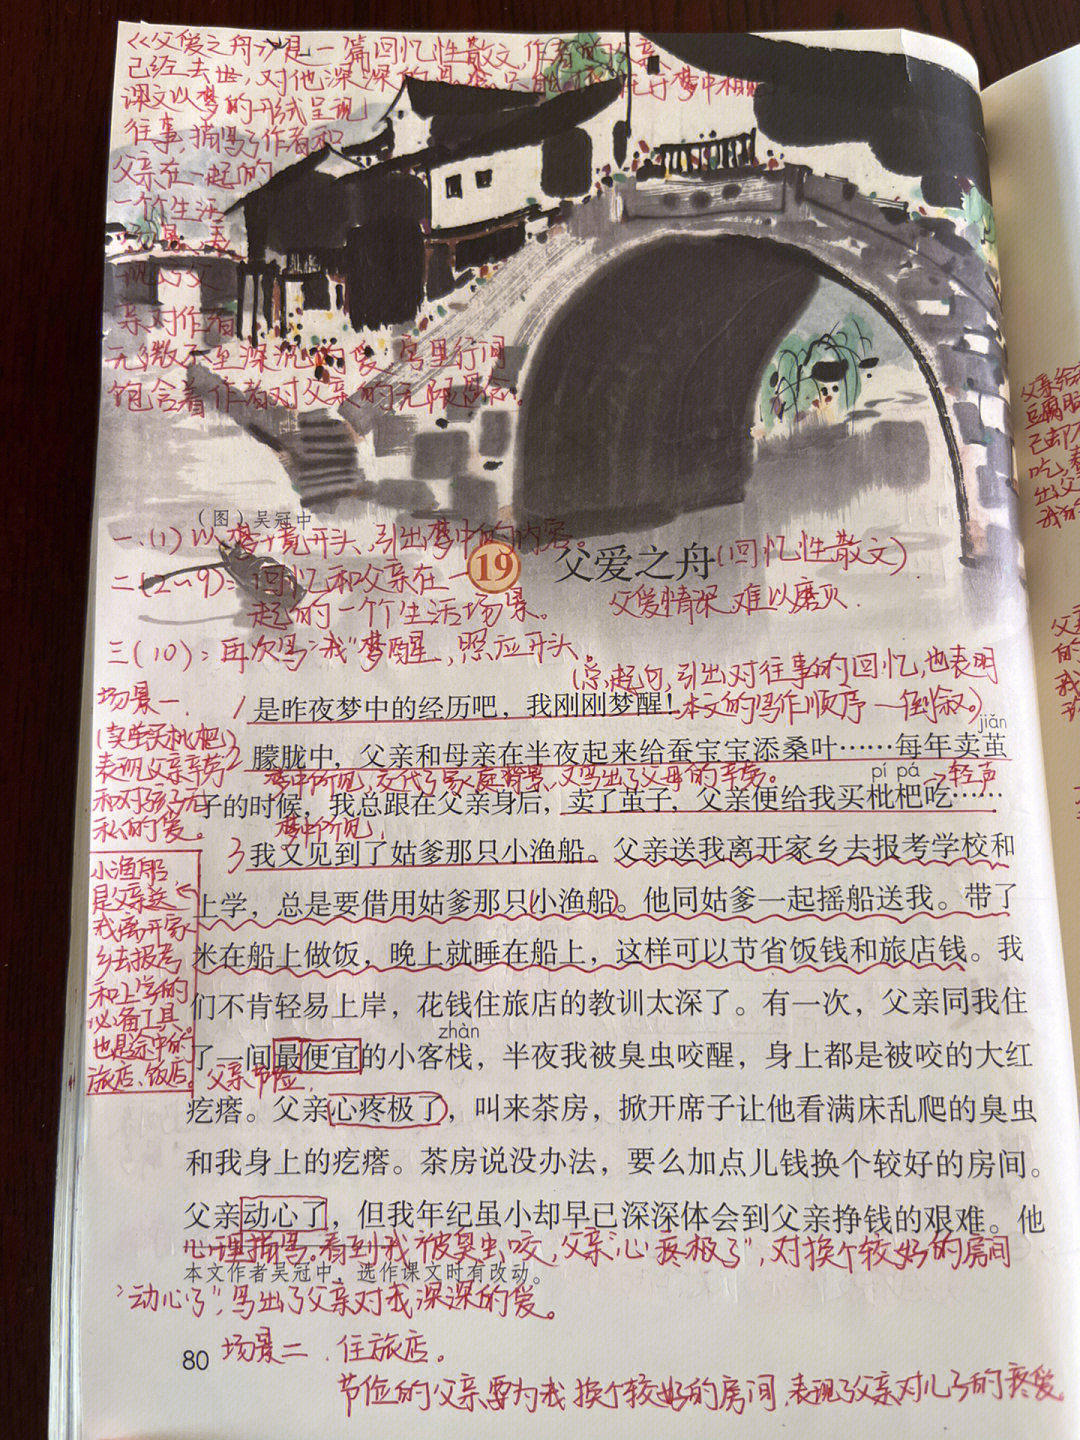 《父爱之舟》是一篇回忆性散文,作者的父亲
已经去世,对他深深的思念只能在梦中相见
课文以梦的形式呈现
往事,描写了作者和
父亲在一起的
一个个生活
场景,表
现了父
亲对作者
无微不至深沉的爱,字里行间
饱含着作者对父亲的无限思念。
(图)吴冠中
一.(1)以梦境开头,引出梦中的内容。
19 父爱之舟(回忆性散文)
二(2~9):回忆和父亲在一
起的一个个生活场景。
父爱情深 难以磨灭.
三(10):再次写“我”梦醒,照应开头。
(总起句,引出对往事的回忆,也表明
本文的写作顺序—倒叙。)
场景一.
(卖茧买枇杷)
表现父亲辛劳
和对孩子无
私的爱。
1 是昨夜梦中的经历吧,我刚刚梦醒!
jiǎn
2 朦胧中,父亲和母亲在半夜起来给蚕宝宝添桑叶……每年卖茧
梦中所见,交代了家庭背景,又写出了父母的辛劳。
pí pá
轻声
子的时候,我总跟在父亲身后,卖了茧子,父亲便给我买枇杷吃……
梦中所见,
3 我又见到了姑爹那只小渔船。父亲送我离开家乡去报考学校和
上学,总是要借用姑爹那只小渔船。他同姑爹一起摇船送我。带了
米在船上做饭,晚上就睡在船上,这样可以节省饭钱和旅店钱。我
们不肯轻易上岸,花钱住旅店的教训太深了。有一次,父亲同我住
zhàn
了一间最便宜的小客栈,半夜我被臭虫咬醒,身上都是被咬的大红
父亲节俭.
疙瘩。父亲心疼极了,叫来茶房,掀开席子让他看满床乱爬的臭虫
和我身上的疙瘩。茶房说没办法,要么加点儿钱换个较好的房间。
父亲动心了,但我年纪虽小却早已深深体会到父亲挣钱的艰难。他
小渔船
是父亲送
我离开家
乡去报考
和上学的
必备工具
也是途中的
旅店、饭店。
心理描写。看到我被臭虫咬,父亲“心疼极了”,对换个较好的房间
本文作者吴冠中,选作课文时有改动。
“动心了”,写出了父亲对我深深的爱。
80
场景二.住旅店。
节俭的父亲要为我换个较好的房间,表现了父亲对儿子的疼爱
父亲给我
豆腐脑
己却不
吃,表
出父
我的